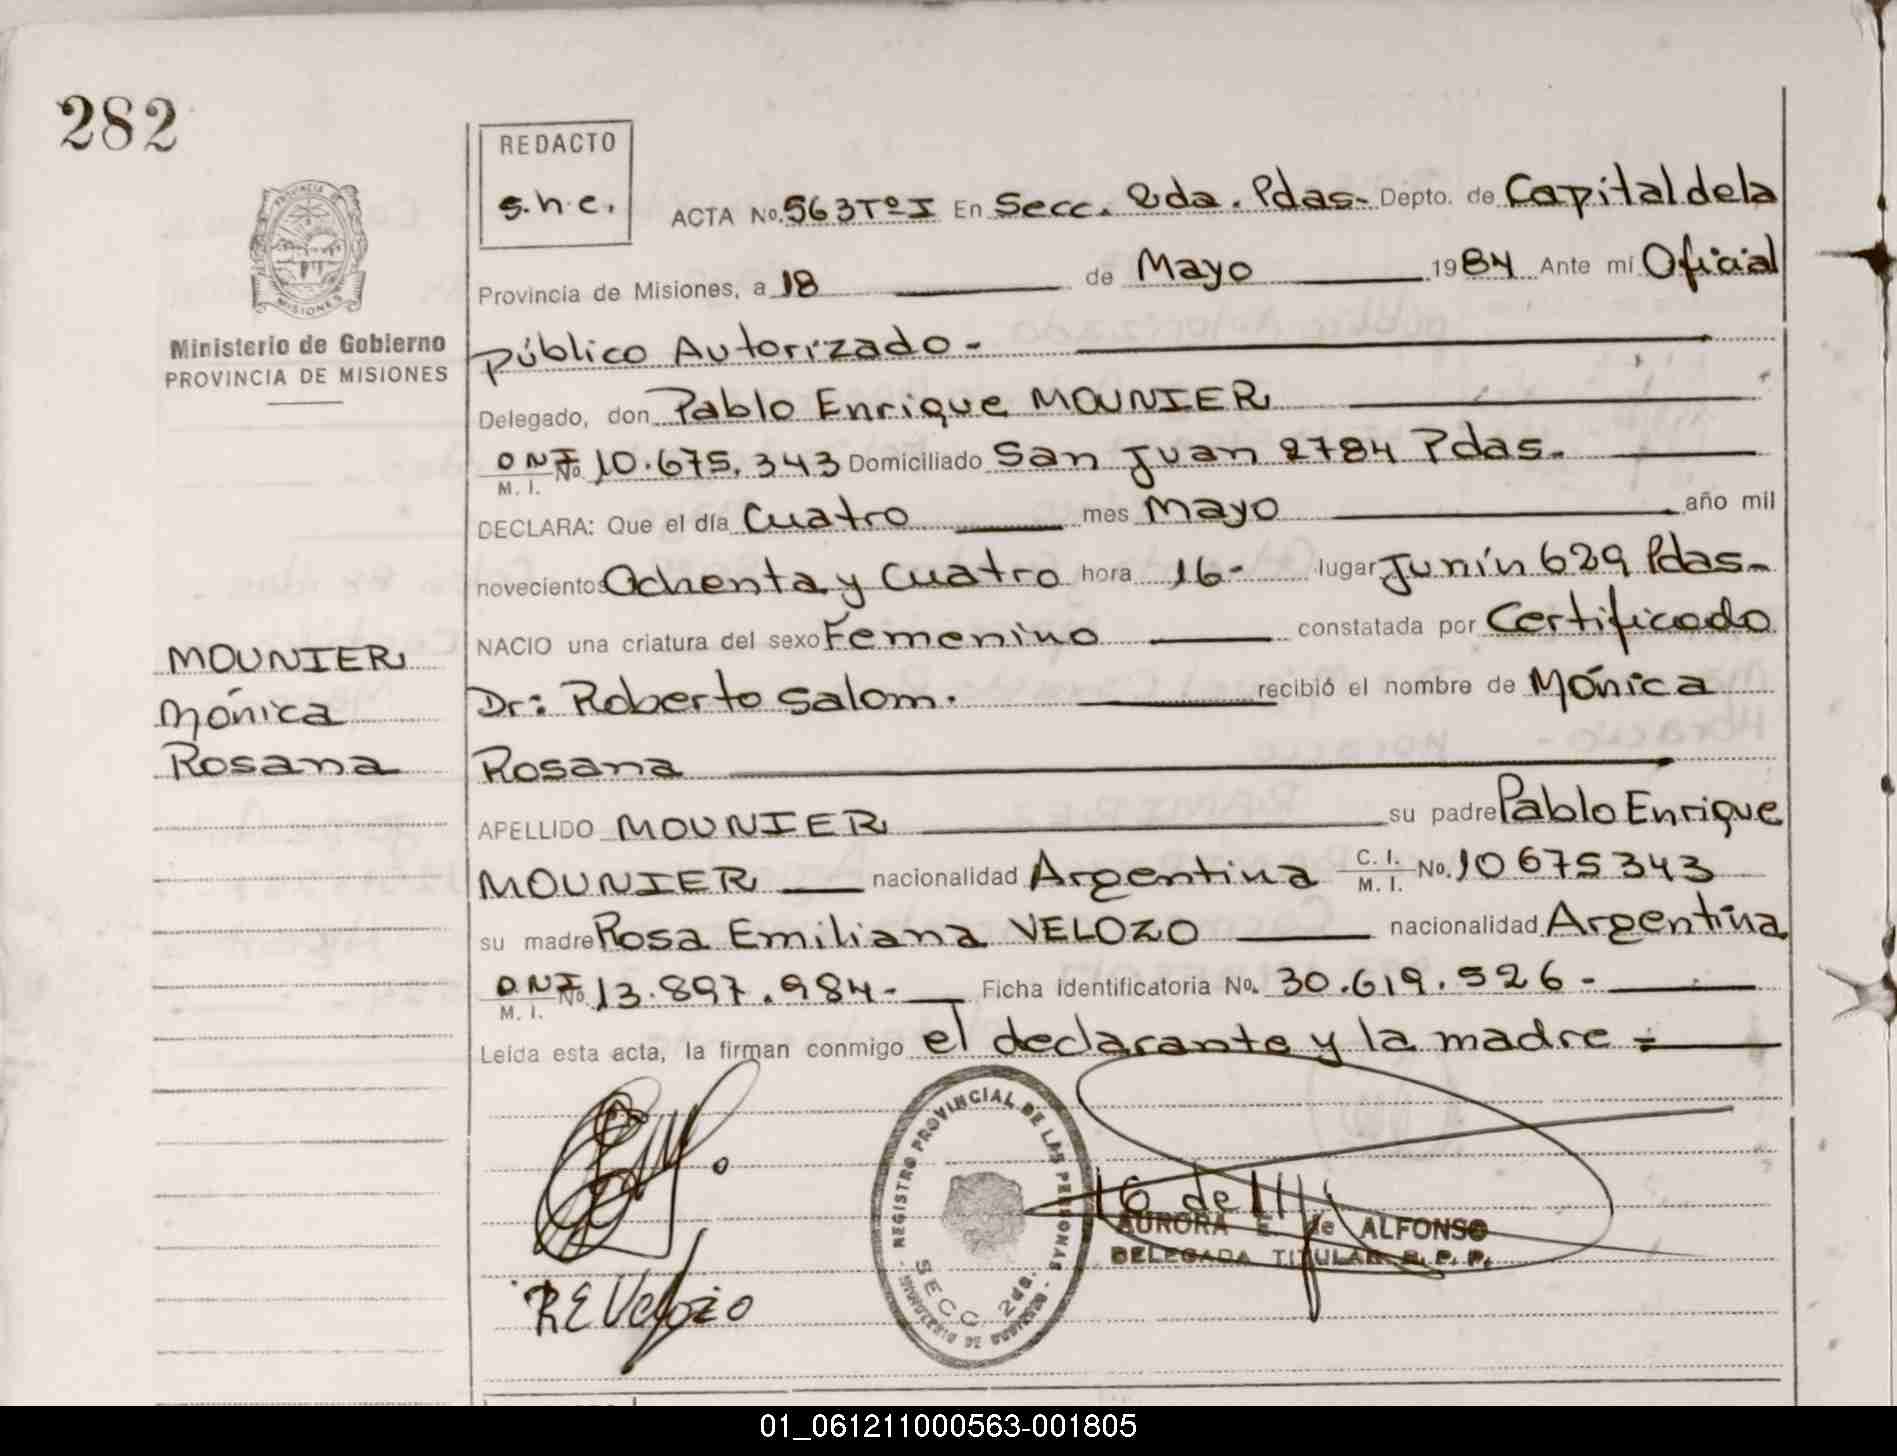 282
REDACTO
s.h.e.
ACTA No. 563 Tº I En Secc. 2da. Pdas- Depto. de Capital de la
Provincia de Misiones, a 18 de Mayo 1984 Ante mí Oficial
público Autorizado -
Delegado, don Pablo Enrique MOUNIER
DNI No. 10.675.343 Domiciliado San Juan 2784 Pdas.
M. I.
DECLARA: Que el día Cuatro mes Mayo año mil
novecientos Ochenta y Cuatro hora 16- lugar Junín 629 Pdas-
NACIO una criatura del sexo Femenino constatada por Certificado
Dr: Roberto Salom. recibió el nombre de Mónica
Rosana
APELLIDO MOUNIER su padre Pablo Enrique
MOUNIER nacionalidad Argentina C. I. M. I. No. 10675343
su madre Rosa Emiliana VELOZO nacionalidad Argentina
DNI No. 13.897.984- Ficha identificatoria No. 30.619.526-
M. I.
Leída esta acta, la firman conmigo el declarante y la madre =
PROVINCIA DE
MISIONES
Ministerio de Gobierno
PROVINCIA DE MISIONES
MOUNIER
Mónica
Rosana
R E Velozo
REGISTRO PROVINCIAL DE LAS PERSONAS
SECC. 2da.
MINISTERIO DE GOBIERNO
AURORA E. de ALFONSO
DELEGADA TITULAR R. P. P.
01_061211000563-001805